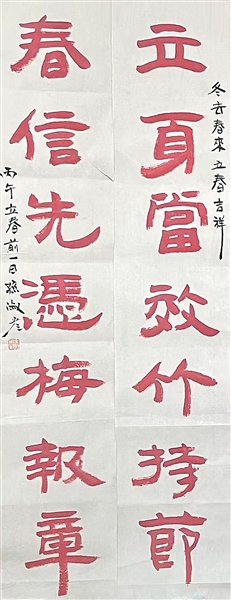 冬去春來立春吉祥
立身當效竹持節
春信先憑梅報章
丙午立春前一日孫淑彥